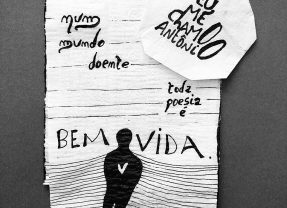 num
mundo
doente
EU
ME
CHAMO
ANTÔNIO
toda
poesia
é
BEM VIDA.